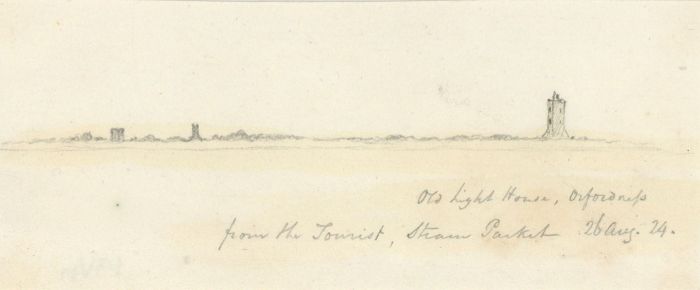 Old Light House, Orfordness
from the Tourist, Steam Packet 26 Aug. 24.